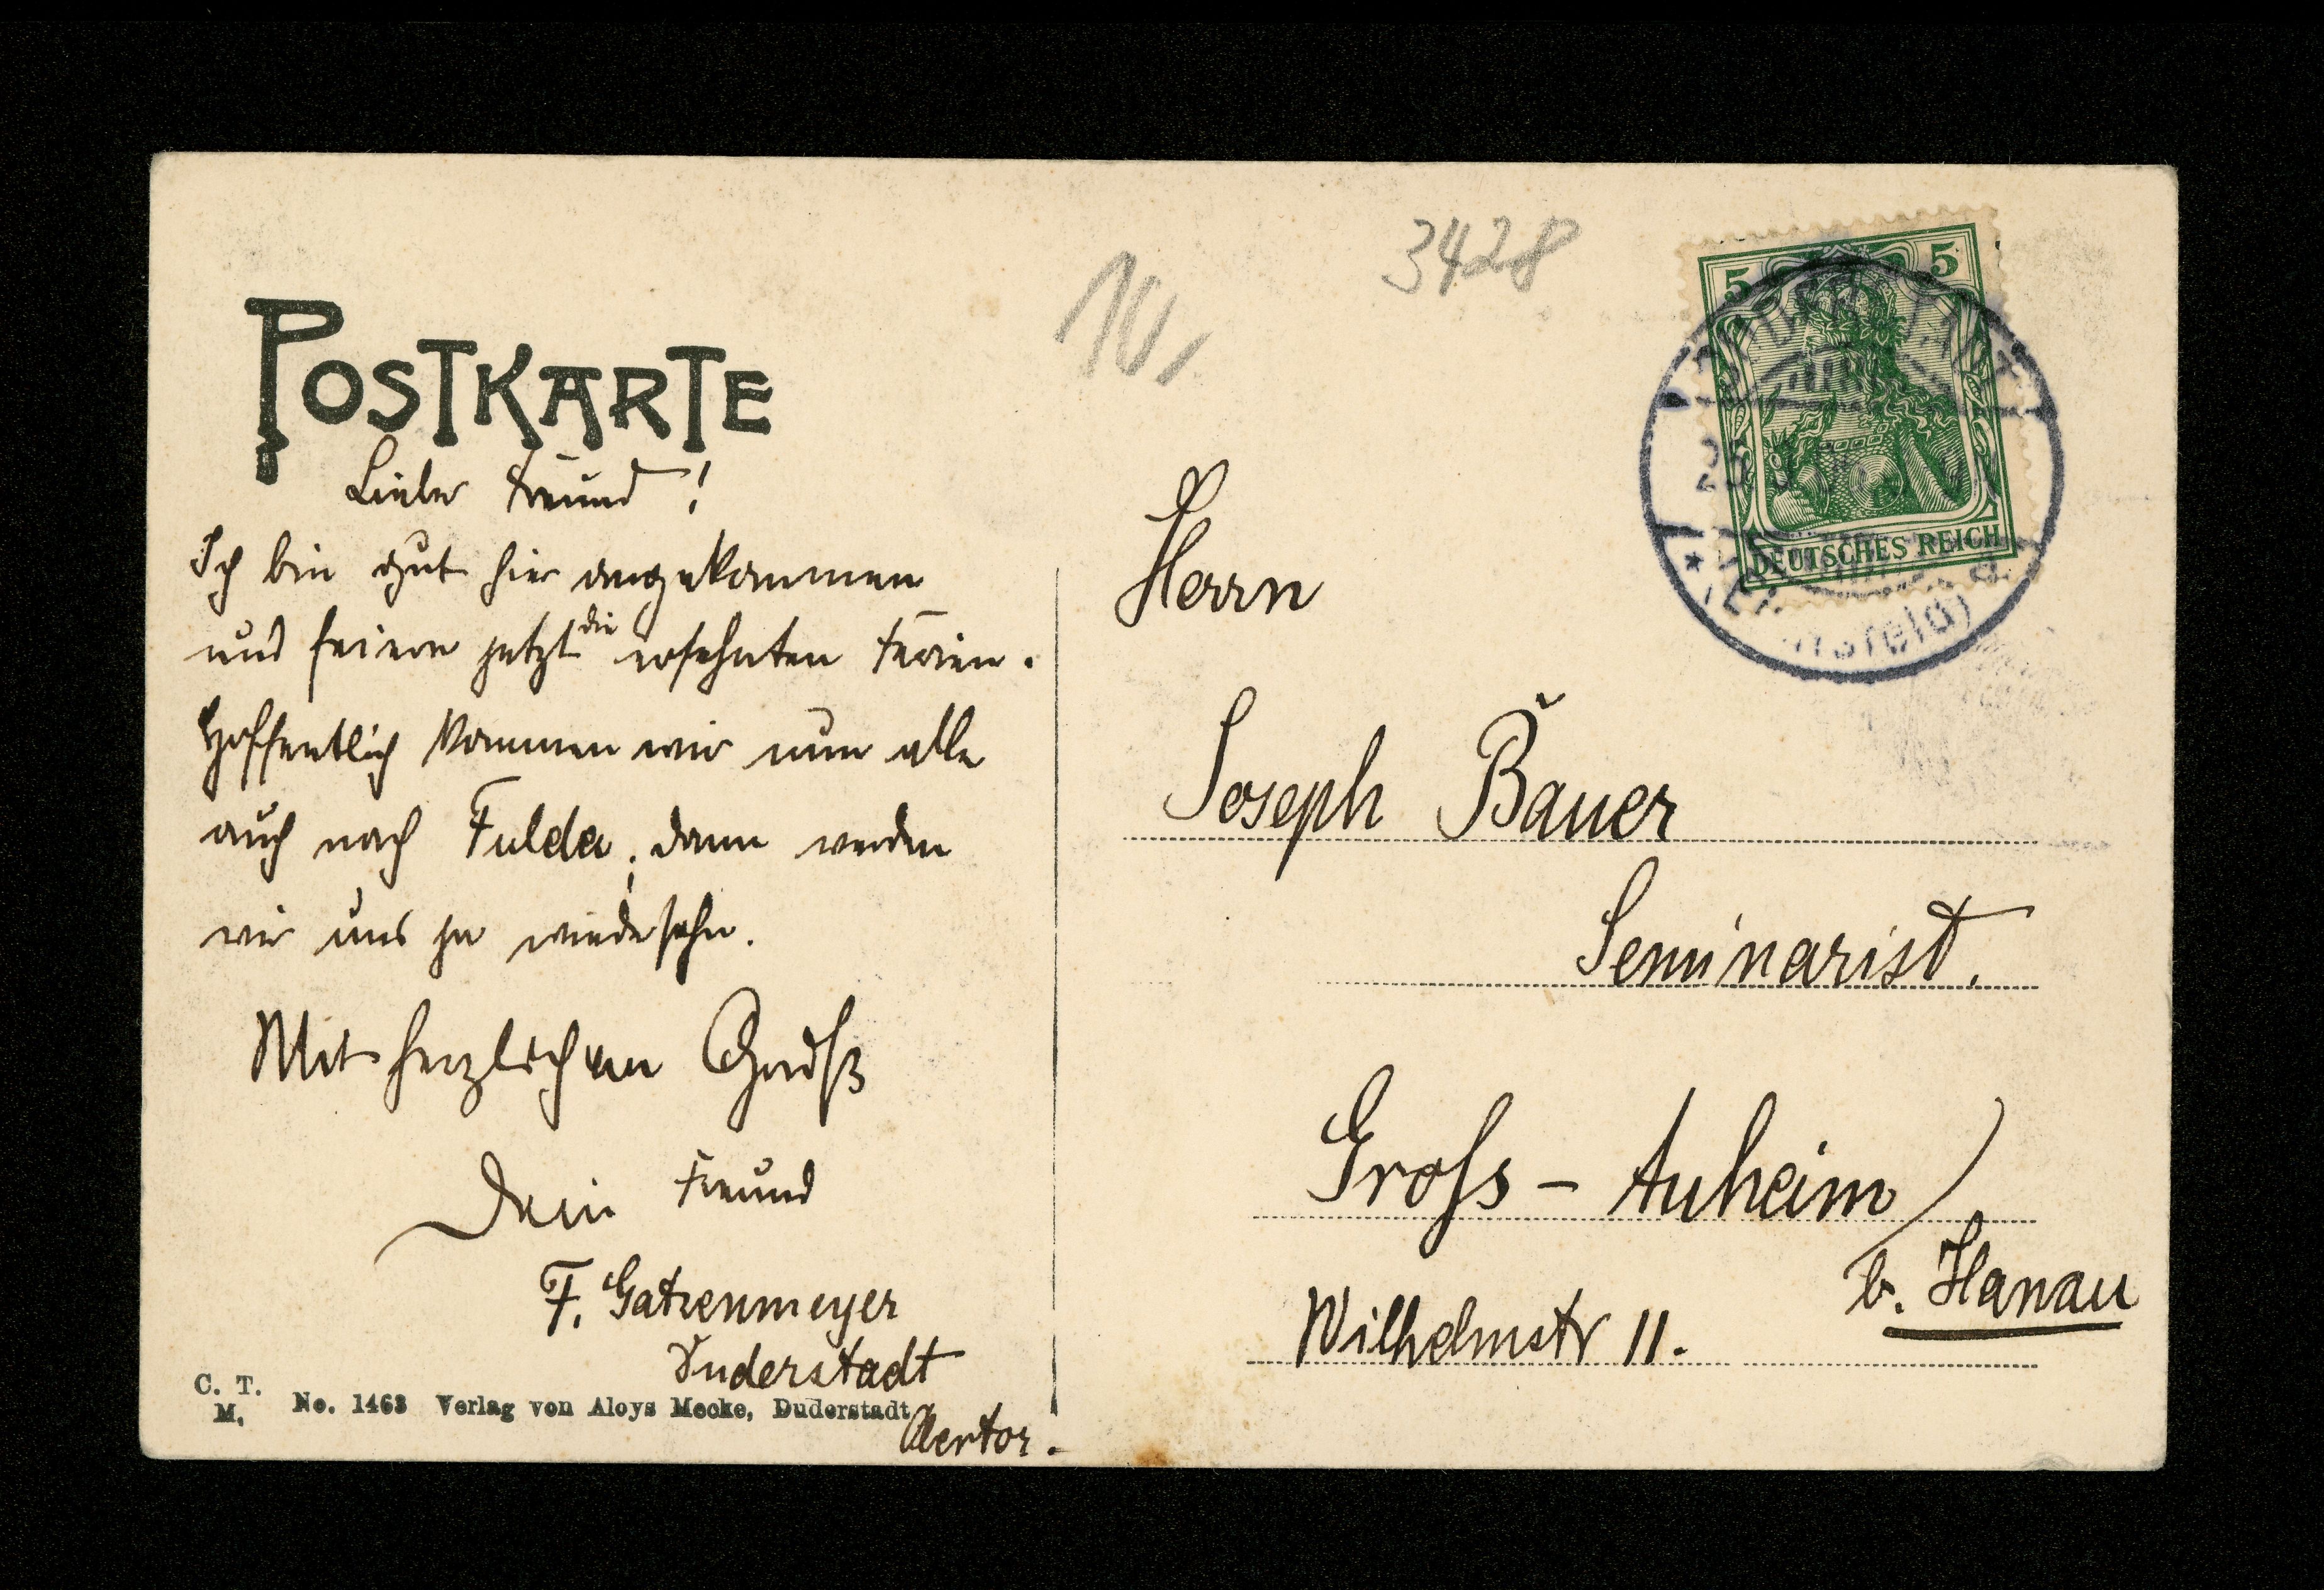 POSTKARTE
Lieber Freund!
Ich bin gut hier angekommen
und feiern jetzt die ersehnten Ferien.
Hoffentlich kommen wir nun alle
auch nach Fulda; dann werden
wir uns ja wiedersehn.
Mit herzlichem Gruß
Dein Freund
F. Gatzenmeyer
Duderstadt
C. T.
M.
No. 1463 Verlag von Aloys Mecke, Duderstadt
10,
3428
5 5
DEUTSCHES REICH
DUDERSTADT
Herrn
Joseph Bauer
Seminarist.
Gross-Auheim
b. Hanau
Wilhelmstr 11.